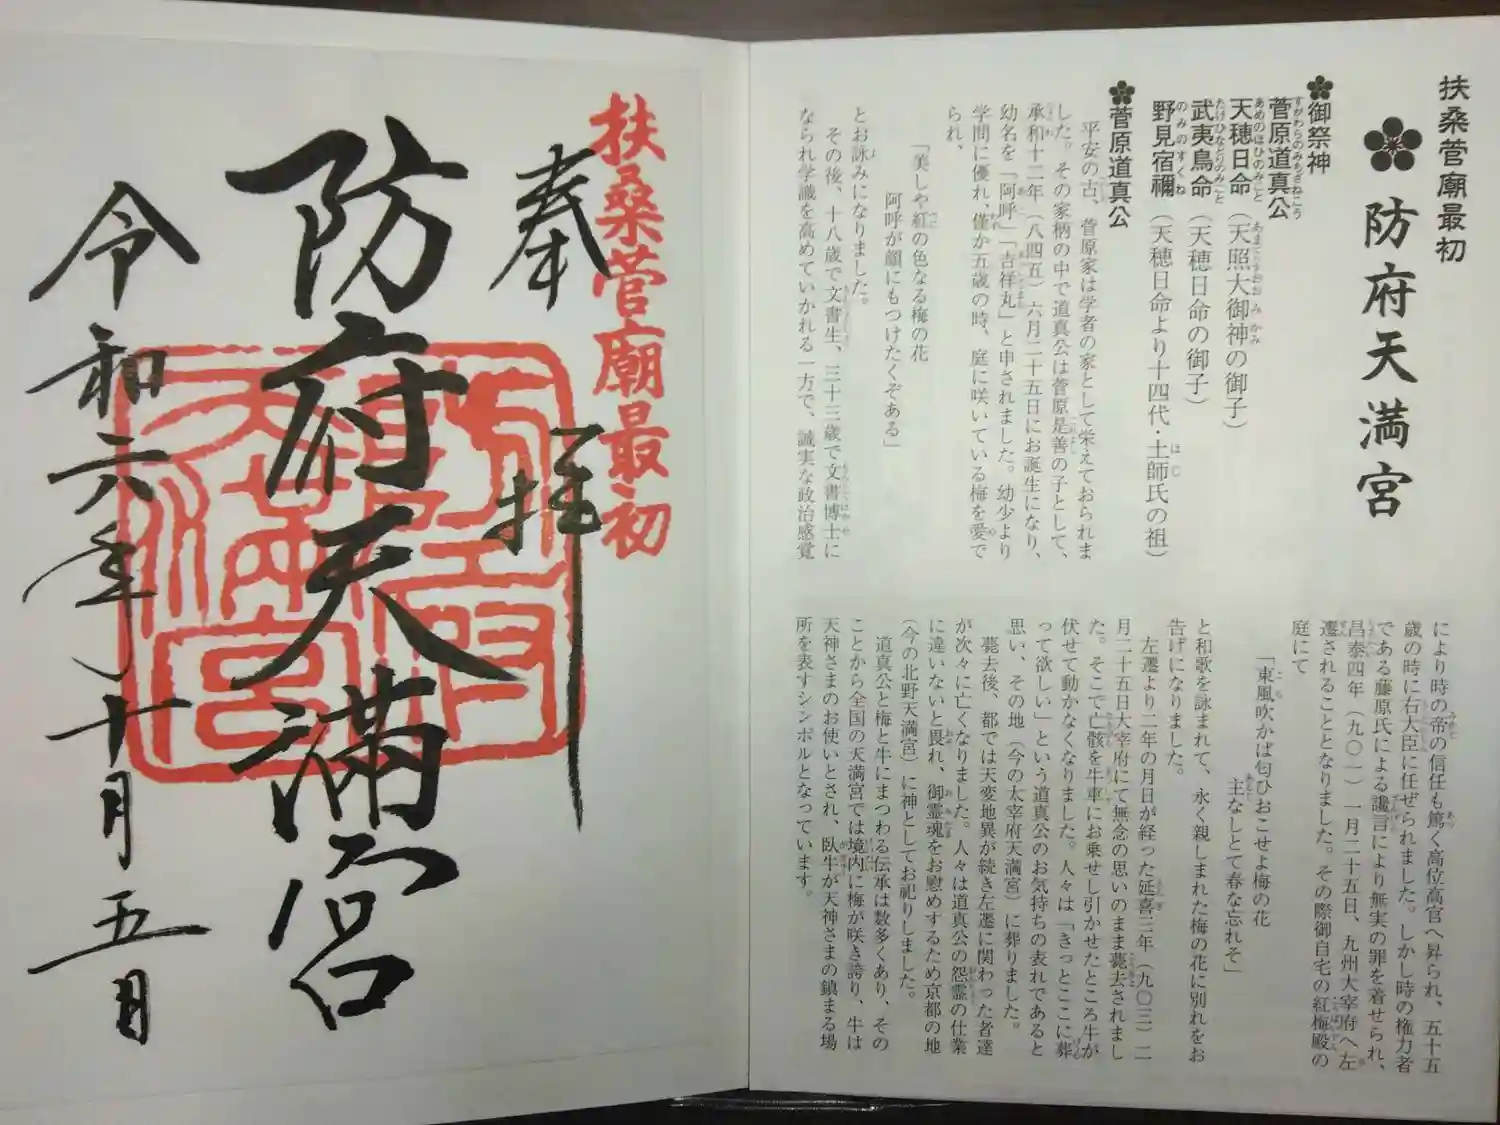 扶桑菅廟最初
防府天満宮
御祭神
菅原道真公
天穂日命(天照大御神の御子)
武夷鳥命(天穂日命の御子)
野見宿禰(天穂日命より十四代・土師氏の祖)
菅原道真公
平安の古、菅原家は学者の家として栄えておられま
した。その家柄の中で道真公は菅原是善の子として、
承和十二年(八四五)六月二十五日にお誕生になり、
幼名を「阿呼」「吉祥丸」と申されました。幼少より
学問に優れ、僅か五歳の時、庭に咲いている梅を愛で
られ、
「美しや紅の色なる梅の花
阿呼が顔にもつけたくぞある」
とお詠みになりました。
その後、十八歳で文書生、三十三歳で文書博士に
なられ学識を高めていかれる一方で、誠実な政治感覚
により時の帝の信任も篤く高位高官へ昇られ、五十五
歳の時に右大臣に任ぜられました。しかし時の権力者
である藤原氏による讒言により無実の罪を着せられ、
昌泰四年(九〇一)一月二十五日、九州大宰府へ左
遷されることとなりました。その際御自宅の紅梅殿の
庭にて
「東風吹かば匂ひおこせよ梅の花
主なしとて春な忘れそ」
と和歌を詠まれて、永く親しまれた梅の花に別れをお
告げになりました。
左遷より二年の月日が経った延喜三年(九〇三)二
月二十五日大宰府にて無念の思いのまま薨去されまし
た。そこで、亡骸を牛車にお乗せし引かせたところ牛が
伏せて動かなくなりました。人々は「きっとここに葬
って欲しい」という道真公のお気持ちの表れであると
思い、その地(今の太宰府天満宮)に葬りました。
薨去後、都では天変地異が続き左遷に関わった者達
が次々に亡くなりました。人々は道真公の怨霊の仕業
に違いないと畏れ、御霊魂をお慰めするため京都の地
(今の北野天満宮)に神としてお祀りしました。
道真公と梅と牛にまつわる伝承は数多くあり、その
ことから全国の天満宮では境内に梅が咲き誇り、牛は
天神さまのお使いとされ、臥牛が天神さまの鎮まる場
所を表すシンボルとなっています。
扶桑菅廟最初
奉拝
防府天満宮
令和六年十月五日